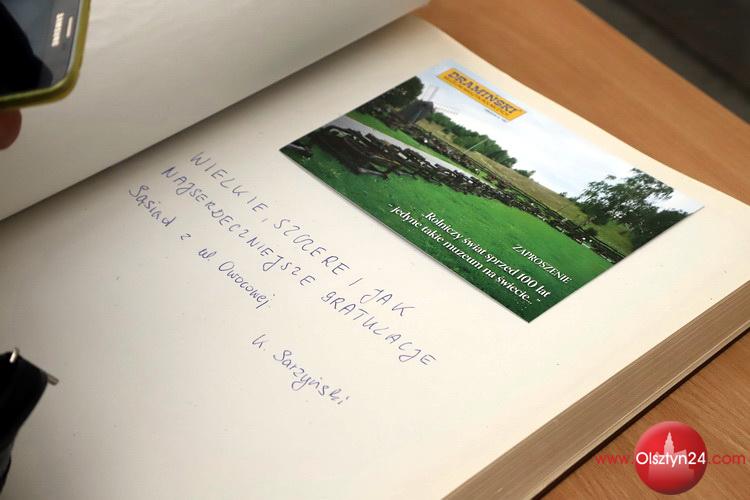 SAMSUNG
DRAMIŃSKI
ZAPROSZENIE
„Rolniczy świat sprzed 100 lat
- jedyne takie muzeum na świecie..."
WIELKIE, SZCZERE I JAK
NAJSERDECZNIEJSZE GRATULACJE
Sąsiad z ul Owocowej.
K. Sarzyński
www.Olsztyn24.com